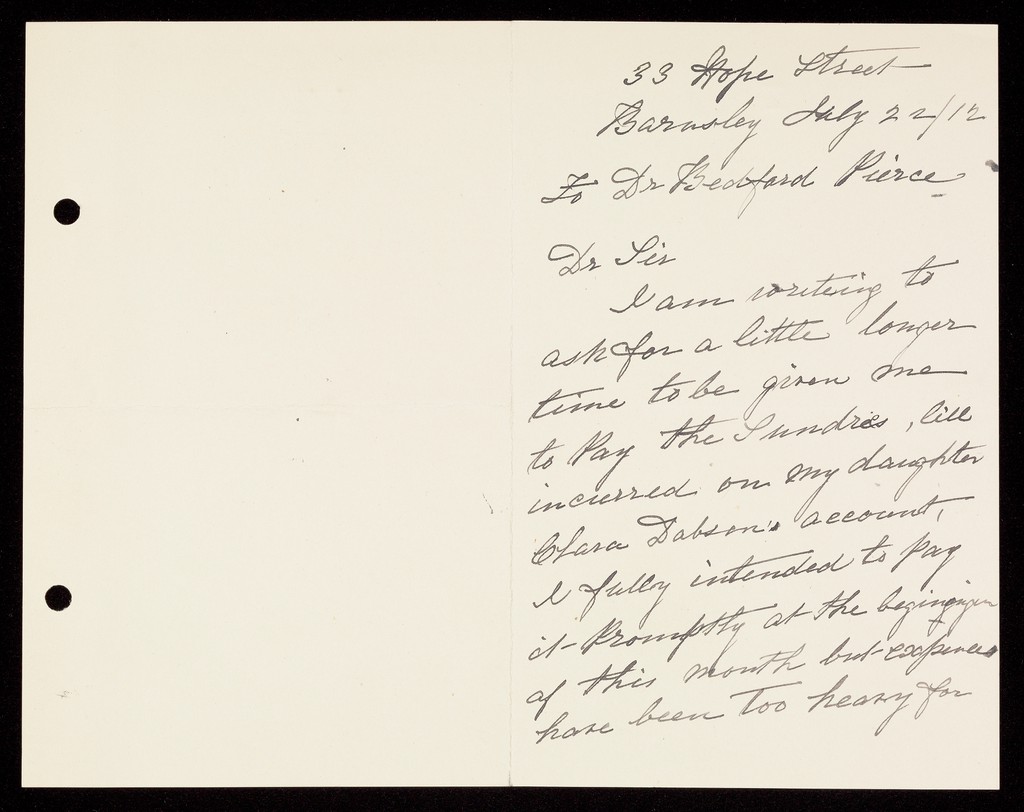 33 Hope Street
Barnsley July 22/12
To Dr Bedford Pierce
Dr Sir
I am writeing to
ask for a little longer
time to be given me
to Pay the Sundries, bill
incurred on my daughter
Clara Dobson's account,
I fully intended to pay
it Promptly at the
of this month but expences
have been Too heavy for